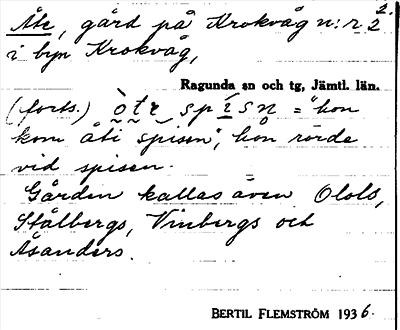 2.
Åte, gård på Krokvåg n:r 2
i byn Krokvåg,
Ragunda sn och tg, Jämtl. län.
(forts.) òtẹ spísn = "hon
kom åti spisen", hon rörde
vid spisen.
Gården kallas även Olols,
Stålbergs, Vinbergs och
Åsanders.
BERTIL FLEMSTRÖM 1936.